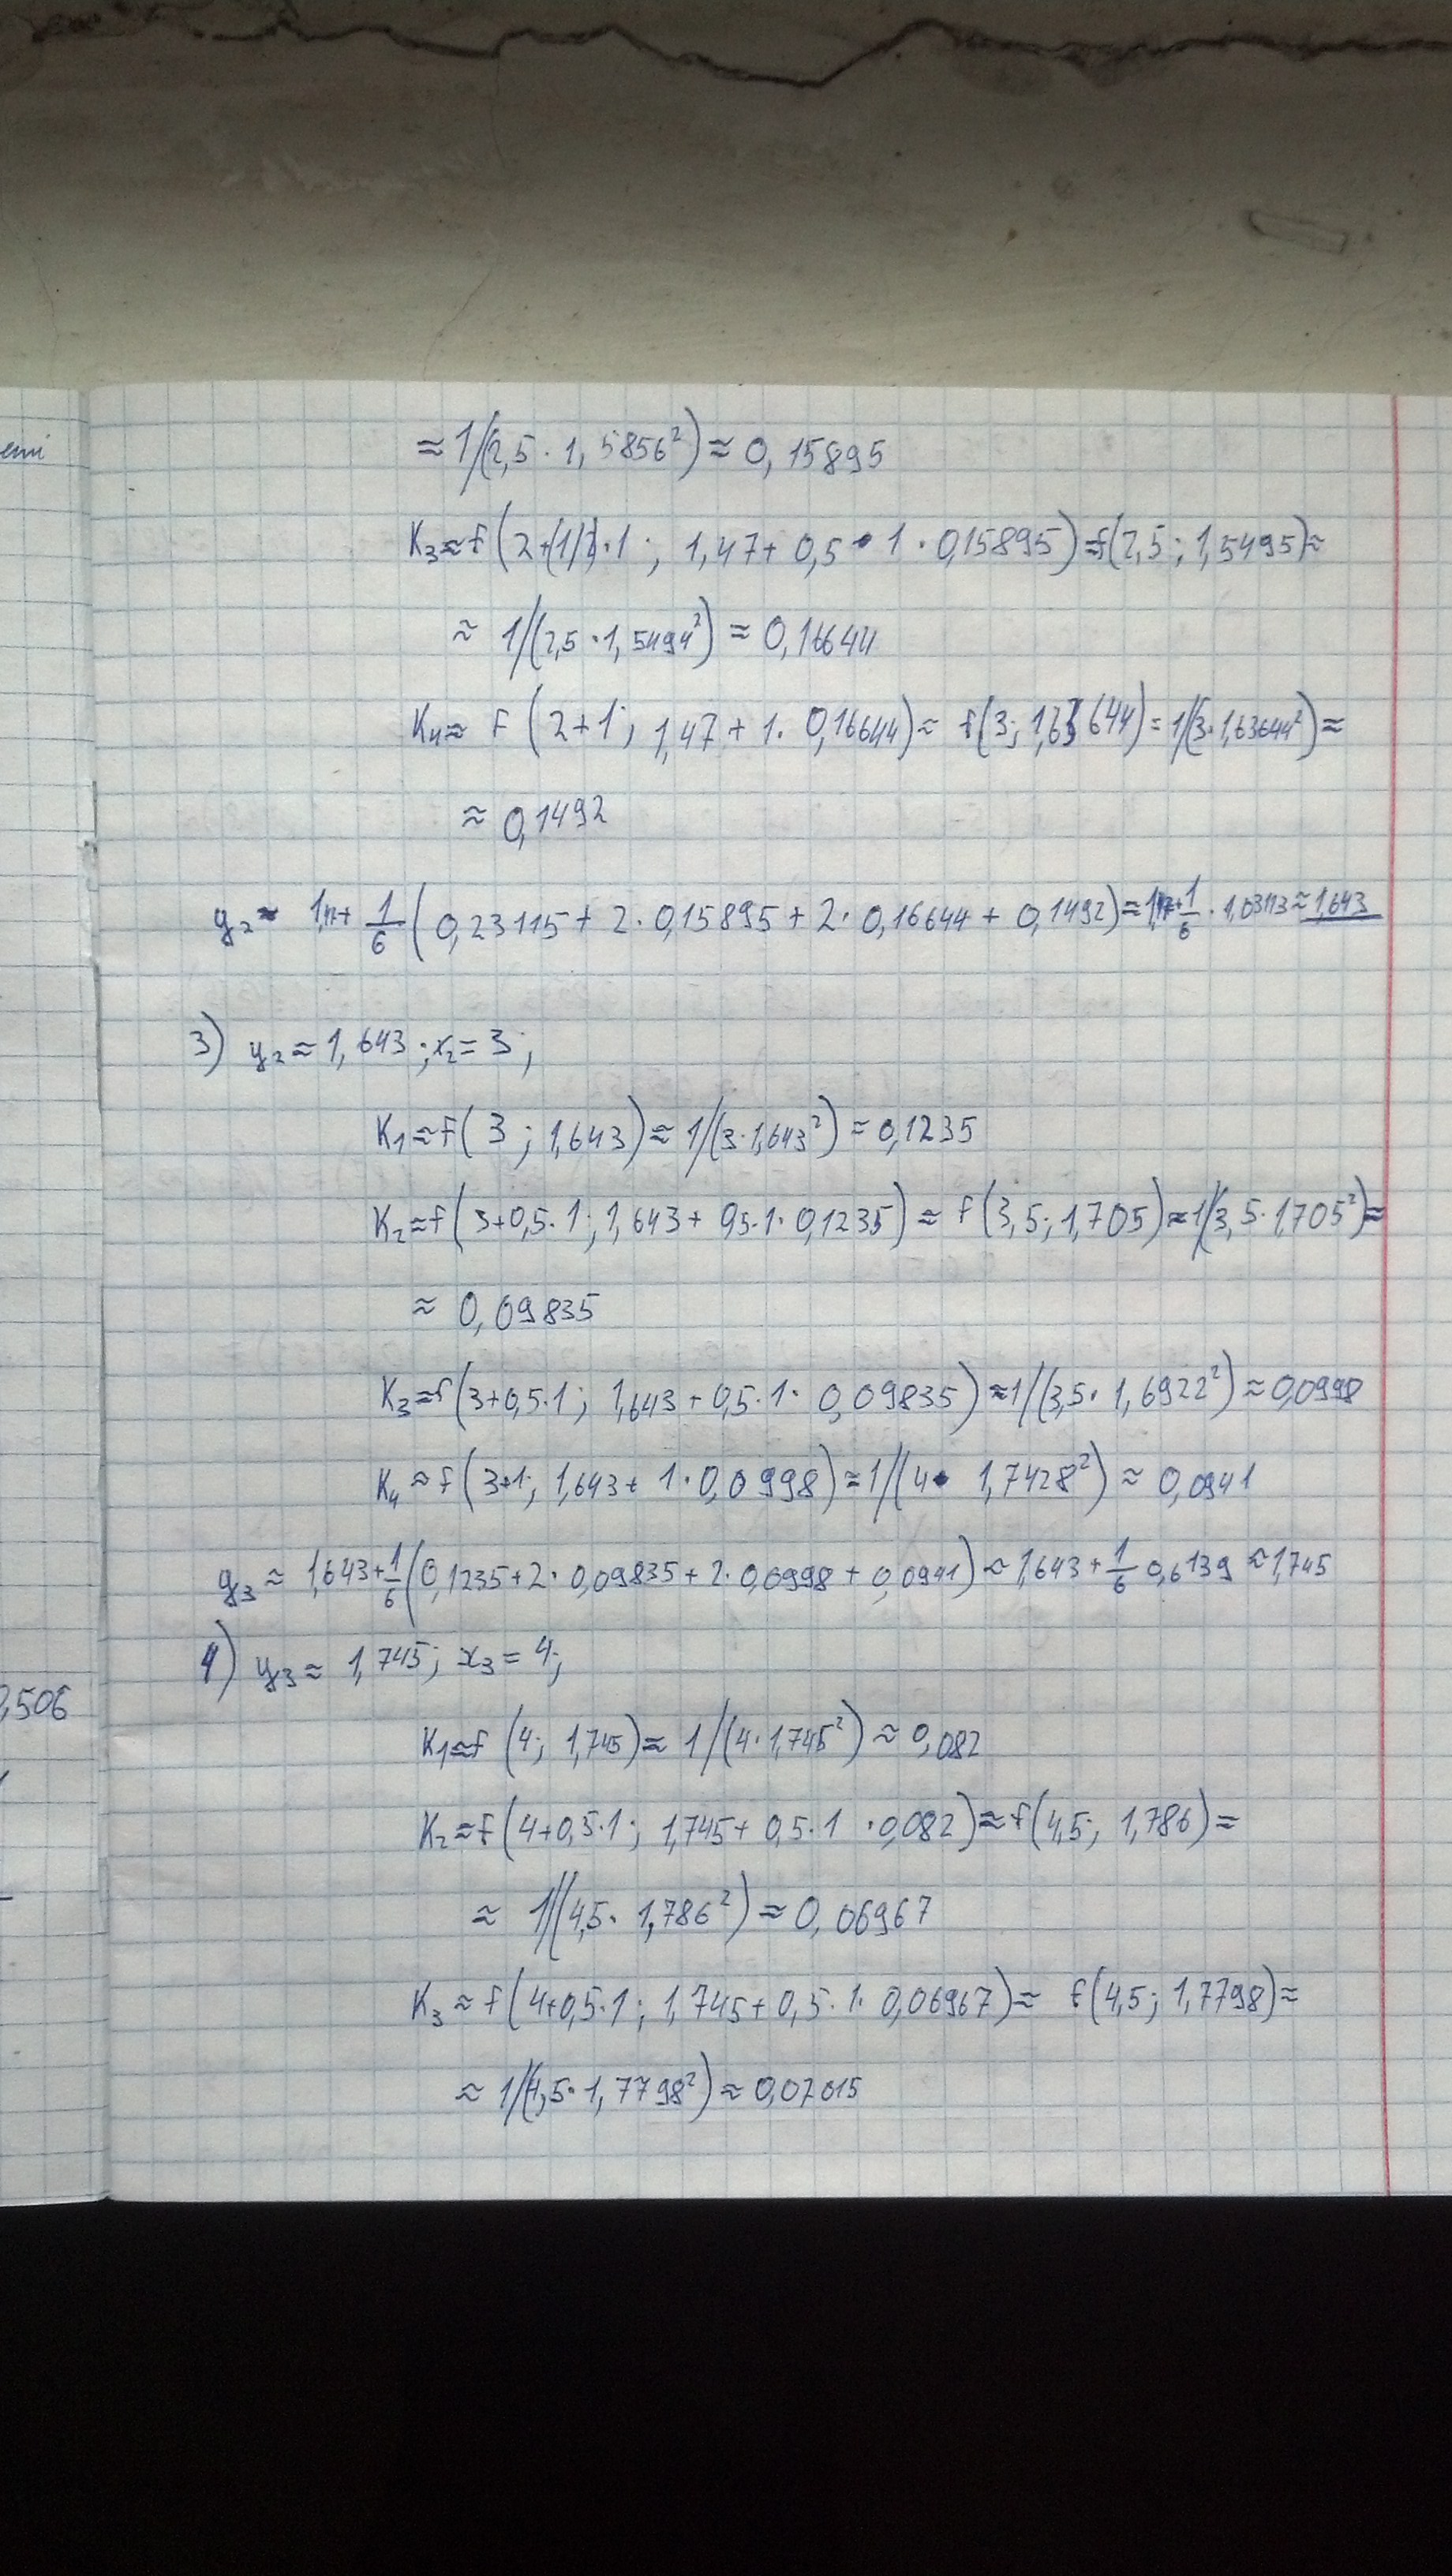 ≈ 1/(2,5 · 1,5856²) ≈ 0,15895
K₃≈f(2+(1/2)·1; 1,47+0,5·1·0,15895)≈f(2,5; 1,5495)≈
≈ 1/(2,5·1,5494²) ≈ 0,16644
K₄≈ f(2+1; 1,47+1·0,16644)≈ f(3; 1,63644)=1/(3·1,63644²)≈
≈ 0,1492
y₂≈ 1,47+ 1/6 (0,23115+2·0,15895+2·0,16644+0,1492)≈1,47+1/6·1,03113≈1,643
3) y₂≈1,643; x₂=3;
K₁≈f(3; 1,643)≈1/(3·1,643²)≈0,1235
K₂≈f(3+0,5·1; 1,643+0,5·1·0,1235)≈ f(3,5; 1,705)≈1/(3,5·1,705²)≈
≈ 0,09835
K₃≈f(3+0,5·1; 1,643+0,5·1·0,09835)≈1/(3,5·1,6922²)≈0,0998
K₄≈f(3+1; 1,643+1·0,0998)≈1/(4·1,7428²)≈0,0941
y₃≈1,643+1/6(0,1235+2·0,09835+2·0,0998+0,0941)≈1,643+1/6 0,6139≈1,745
4) y₃≈1,745; x₃=4;
K₁≈f(4; 1,745)≈ 1/(4·1,745²)≈0,082
K₂≈f(4+0,5·1; 1,745+0,5·1·0,082)≈f(4,5; 1,786)≈
≈ 1/(4,5·1,786²)≈0,06967
K₃≈f(4+0,5·1; 1,745+0,5·1·0,06967)≈ f(4,5; 1,7798)≈
≈ 1/(4,5·1,7798²)≈0,07015
,506